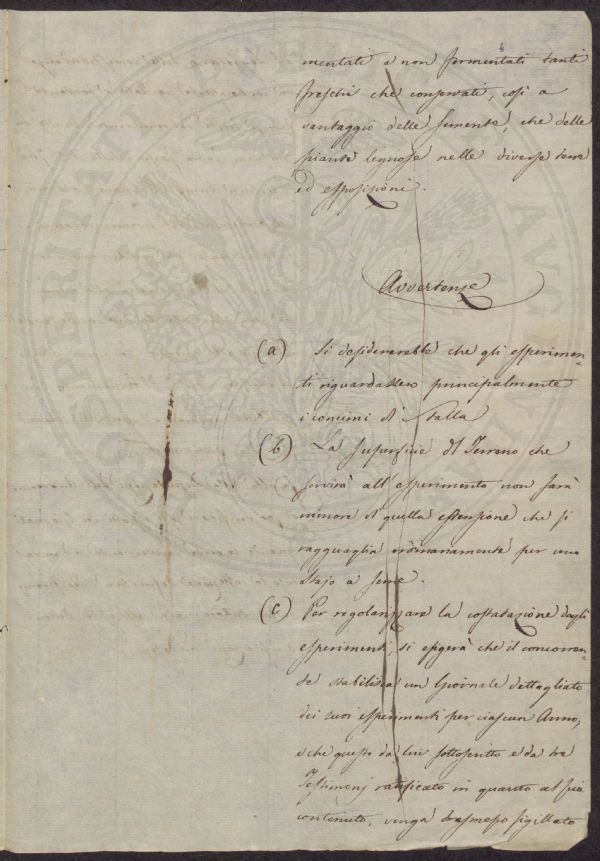 mentati e non fermentati tanti
freschi che conservati, così a
vantaggio delle sementi, che delle
piante legnose nelle diverse terre
ed esposizioni.
Avvertenze
(a) Si desidererebbe che gli esperimen-
ti riguardassero principalmente
i concimi di Stalla
(b) La superficie del Terreno che
servirà all'esperimento non sarà
minore di quella estensione che si
ragguaglia ordinariamente per uno
stajo a seme.
(c) Per regolarizzare la costatazione degli
esperimenti, si esigerà che il concorren-
te stabilisca un Giornale dettagliato
dei suoi esperimenti per ciascun Anno,
e che questo da lui sottoscritto e da tre
Testimonj ratificato in quanto al suo
contenuto, venga trasmesso sigillato